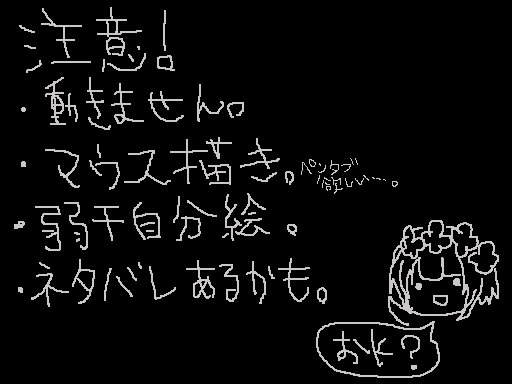 注意!
・動きません。
・マウス描き。ペンタブ
欲しい…。
・弱干自分絵。
・ネタバレあるかも。
おk?